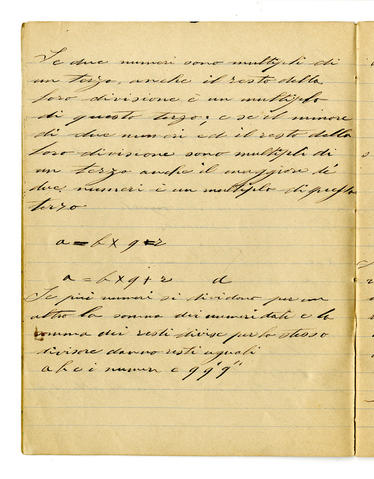 Se due numeri sono multipli di
un terzo, anche il resto della
loro divisione è un multiplo
di questo terzo; e se il minore
di due numeri ed il resto della
loro divisione sono multipli di
un terzo anche il maggiore di
due numeri è un multiplo di questo
terzo
a = b × q + r
a = b × q + r d
Se più numeri si dividono per un
altro la somma dei numeri dati e la
somma dei resti divise per lo stesso
divisore danno resti uguali
a b c i numeri e q q' q''